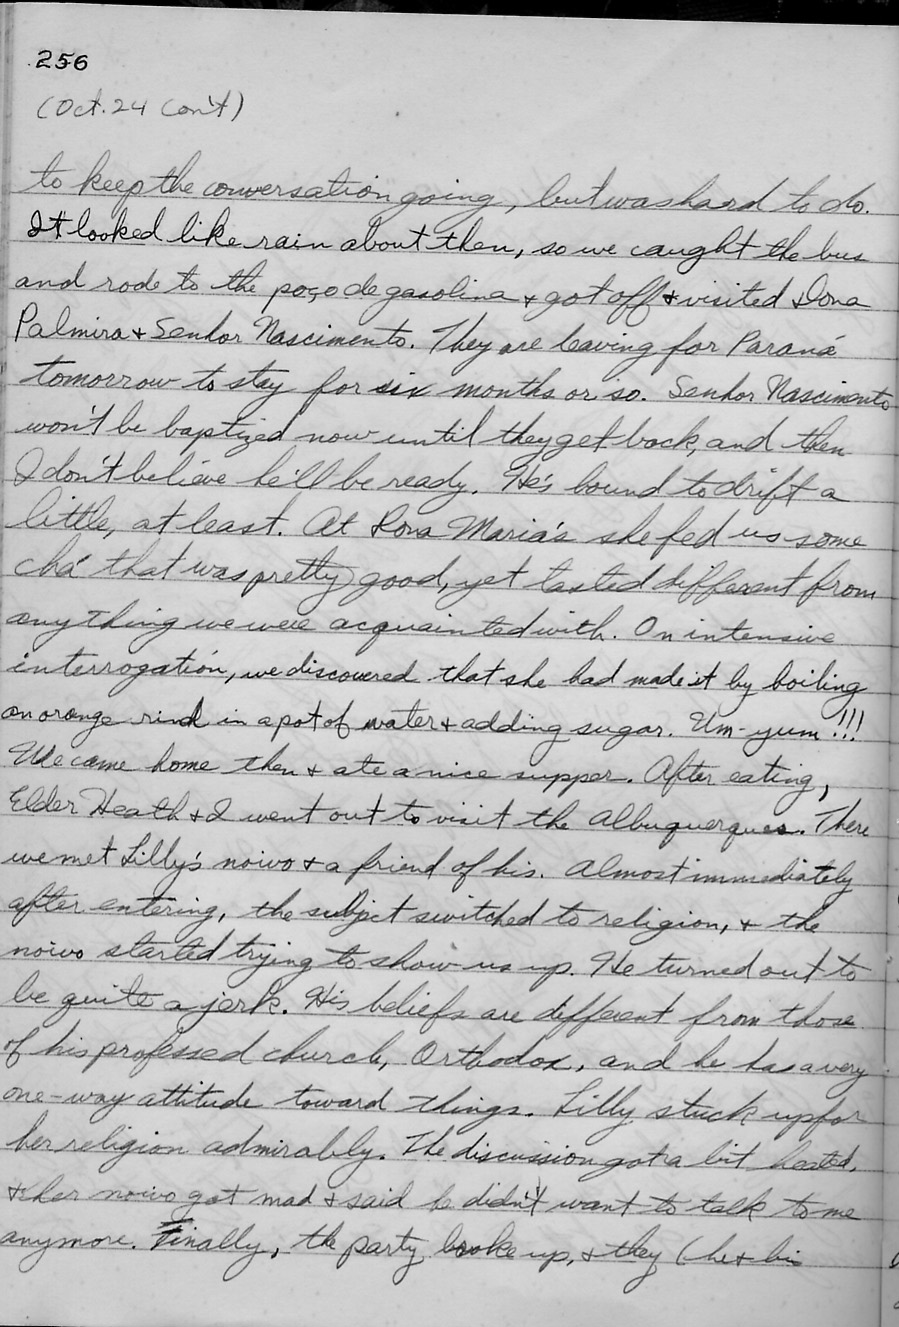 256
(Oct. 24 Con't)
to keep the conversation going, but was hard to do.
It looked like rain about then, so we caught the bus
and rode to the poço de gasolina & got off & visited Dona
Palmira & Senhor Nascimento. They are leaving for Paraná
tomorrow to stay for six months or so. Senhor Nascimento
won't be baptized now until they get back, and then
I don't believe he'll be ready. He's bound to drift a
little, at least. At Dona Maria's she fed us some
chá that was pretty good, yet tasted different from
anything we were acquainted with. On intensive
interrogation, we discovered that she had made it by boiling
an orange rind in a pot of water & adding sugar. Um-yum!!!
We came home then & ate a nice supper. After eating,
Elder Heath & I went out to visit the Albuquerques. There
we met Lilly's noivo & a friend of his. Almost immediately
after entering, the subject switched to religion, & the
noivo started trying to show us up. He turned out to
be quite a jerk. His beliefs are different from those
of his professed church, Orthodox, and he has a very
one-way attitude toward things. Lilly stuck up for
her religion admirably. The discussion got a bit heated,
& her noivo got mad & said he didn't want to talk to me
anymore. Finally, the party broke up, & they (he & his